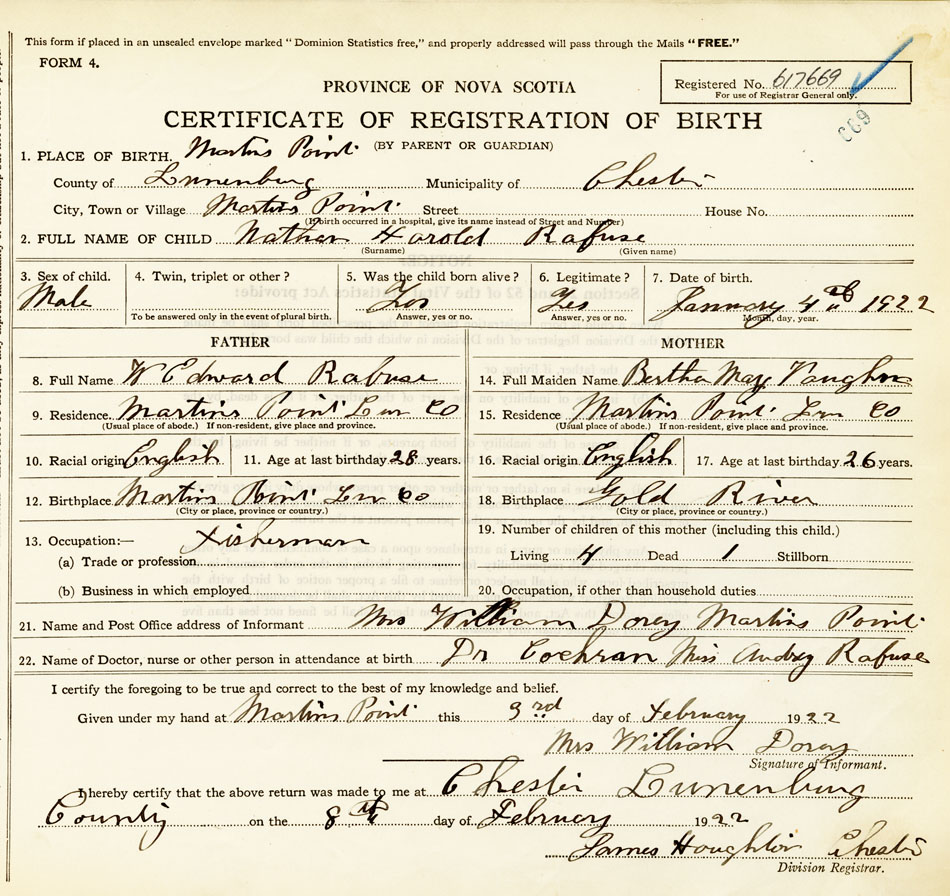 This form if placed in an unsealed envelope marked "Dominion Statistics free," and properly addressed will pass through the Mails "FREE."
FORM 4.
Registered No. 617669
For use of Registrar General only.
669
PROVINCE OF NOVA SCOTIA
CERTIFICATE OF REGISTRATION OF BIRTH
(BY PARENT OR GUARDIAN)
1. PLACE OF BIRTH. Martins Point
County of Lunenburg Municipality of Chester
City, Town or Village Martins Point Street House No.
(If birth occurred in a hospital, give its name instead of Street and Number)
2. FULL NAME OF CHILD Nathan Harold Rafuse
(Surname) (Given name)
3. Sex of child. 4. Twin, triplet or other? 5. Was the child born alive? 6. Legitimate? 7. Date of birth.
Male Yes Yes January 4th 1922
To be answered only in the event of plural birth. Answer, yes or no. Answer, yes or no. Month, day, year.
FATHER MOTHER
8. Full Name W Edward Rafuse 14. Full Maiden Name Bertha May Vaughn
9. Residence. Martins Point Lun Co 15. Residence Martins Point Lun Co
(Usual place of abode.) If non-resident, give place and province. (Usual place of abode.) If non-resident, give place and province.
10. Racial origin English 11. Age at last birthday 28 years. 16. Racial origin English 17. Age at last birthday 26 years.
12. Birthplace Martins Point Lun Co 18. Birthplace Gold River
(City or place, province or country.) (City or place, province or country.)
13. Occupation:— Fisherman 19. Number of children of this mother (including this child.)
(a) Trade or profession Living 4 Dead 1 Stillborn
(b) Business in which employed 20. Occupation, if other than household duties
21. Name and Post Office address of Informant Mrs William Dorey Martins Point
22. Name of Doctor, nurse or other person in attendance at birth Dr Cochran Miss Audrey Rafuse
I certify the foregoing to be true and correct to the best of my knowledge and belief.
Given under my hand at Martins Point this 3rd day of February 1922
Mrs William Dorey
Signature of Informant.
I hereby certify that the above return was made to me at Chester Lunenburg
County on the 8th day of February 1922
James Houghton Chester
Division Registrar.